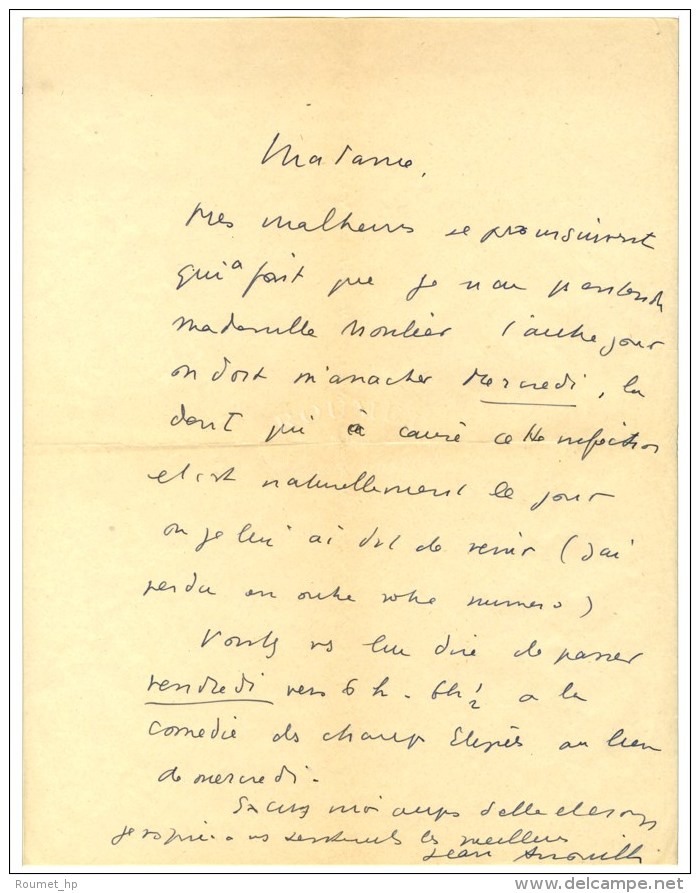 Madame,
mes malheurs se poursuivent
qui a fait que je n'ai pas entendu
mademoiselle l'autre jour
on doit m'arracher Mercredi, la
dent qui a causé cette infection
et c'est naturellement le jour
ou je lui ai dit de venir (j'ai
perdu en outre votre numero)
Voulez vs lui dire de passer
vendredi vers 6 h - 6h ½ a la
comedie des champs Elysées au lieu
de mercredi.
Excusez moi auprès d'elle et
je vs prie a vs sentiments les meilleurs
Jean Anouilh
Roumet_hp
www.delcampe.net